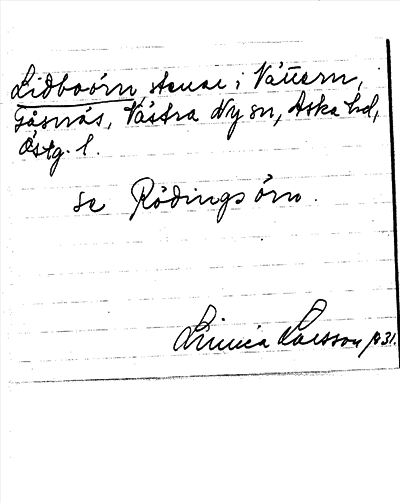 Lidboörn, stenar i Vättern,
Gåsnäs, Västra Ny sn, Aska hd,
Östg. l.
se Rödingsörn.
Linnéa Larsson 1931.